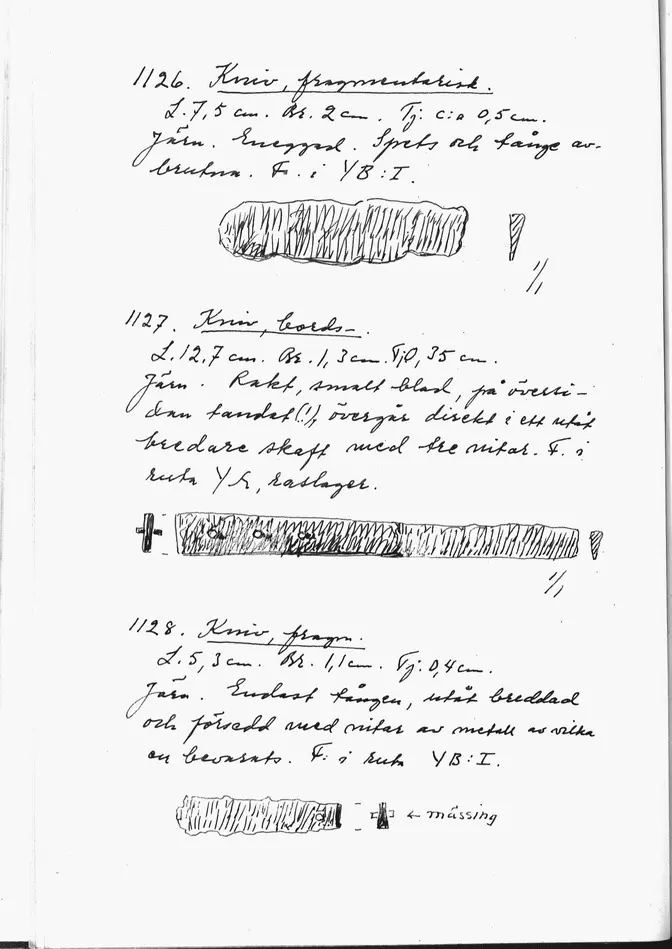 1126. Kniv, fragmentarisk.
L. 7,5 cm. Br. 2 cm. Tj. c:a 0,5 cm.
Järn. Eneggad. Spets och tånge av-
brutna. F. i YB:I.
1/1
1127. Kniv, bords-.
L. 12,7 cm. Br. 1,3 cm. Tj 0,35 cm.
Järn. Rakt, smalt blad, på översi-
dan tandat (!), övergår direkt i ett utåt
bredare skaft med tre nitar. F. i
ruta YA, raslager.
1/1
1128. Kniv, fragm.
L. 5,3 cm. Br. 1,1 cm. Tj. 0,4 cm.
Järn. Endast tången, utåt breddad
och försedd med nitar av metall av vilka
en bevarats. F. i ruta YB:I.
← mässing